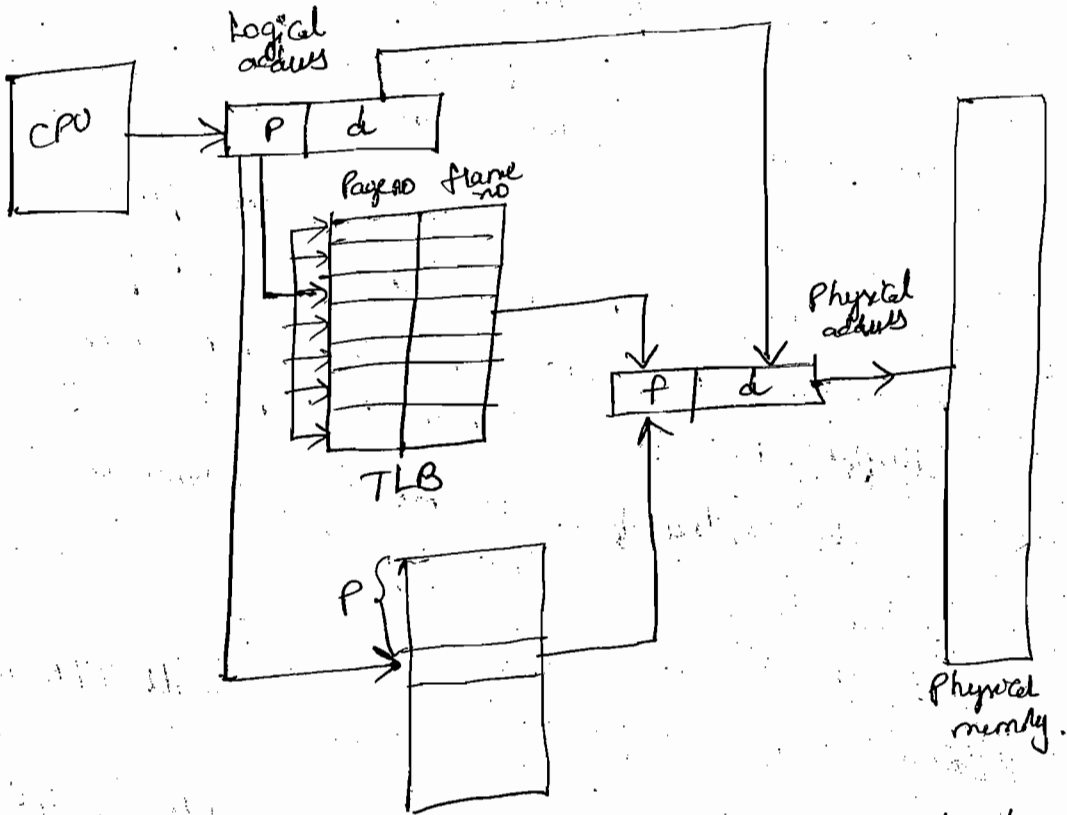 Logical
address
CPU
P d
Page no frame
no
Physical
address
f d
TLB
P
Physical
memory.